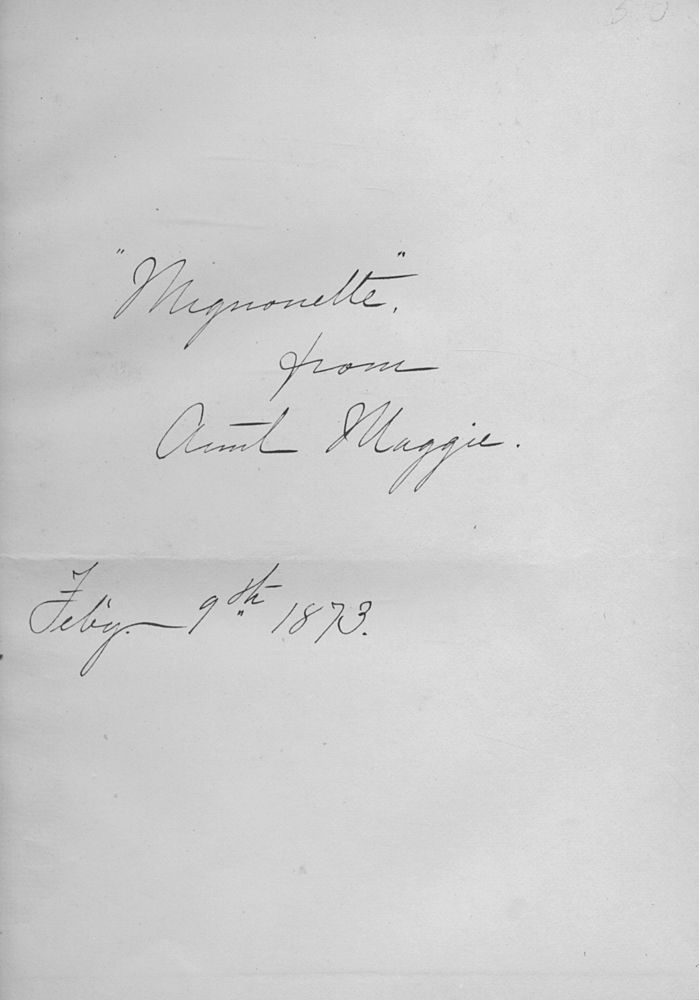 "Mignonette".
from
Aunt Maggie.
Feby. 9th 1873.